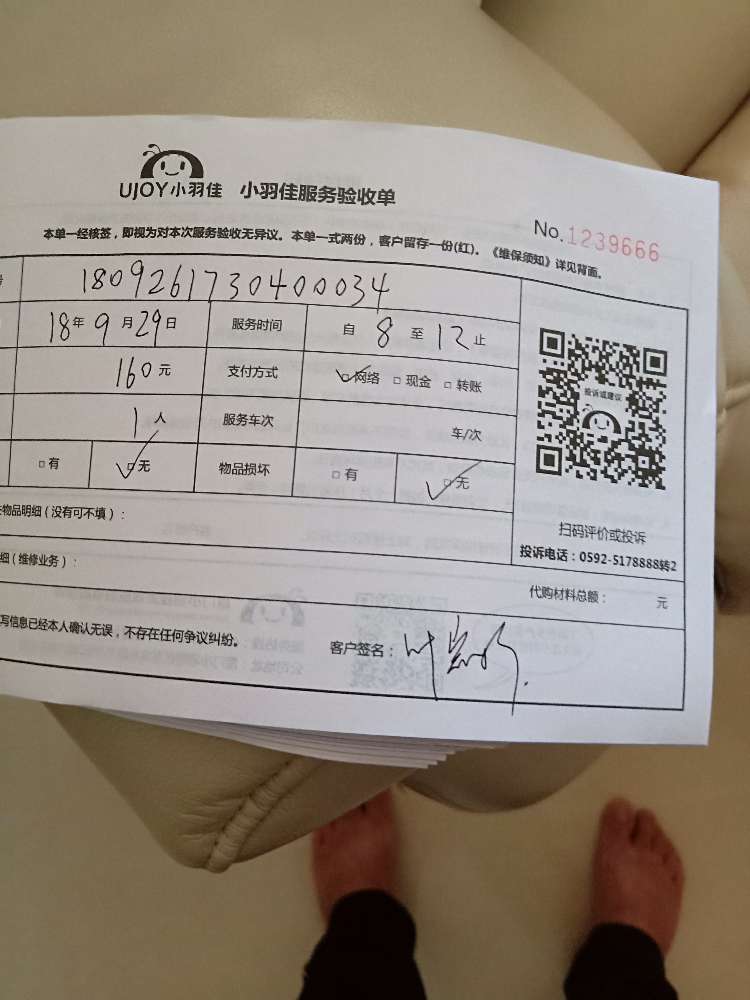 UJOY小羽佳 小羽佳服务验收单
No.1239666
本单一经核签，即视为对本次服务验收无异议。本单一式两份，客户留存一份(红)。《维保须知》详见背面。
号 1809261730400034
18年9月29日 服务时间 自8至12止
160元 支付方式 网络 现金 转账
1人 服务车次 车/次
有 无 物品损坏 有 无
投诉或建议
扫码评价或投诉
投诉电话：0592-5178888转2
物品明细（没有可不填）：
细（维修业务）：
代购材料总额： 元
写信息已经本人确认无误，不存在任何争议纠纷。
客户签名：